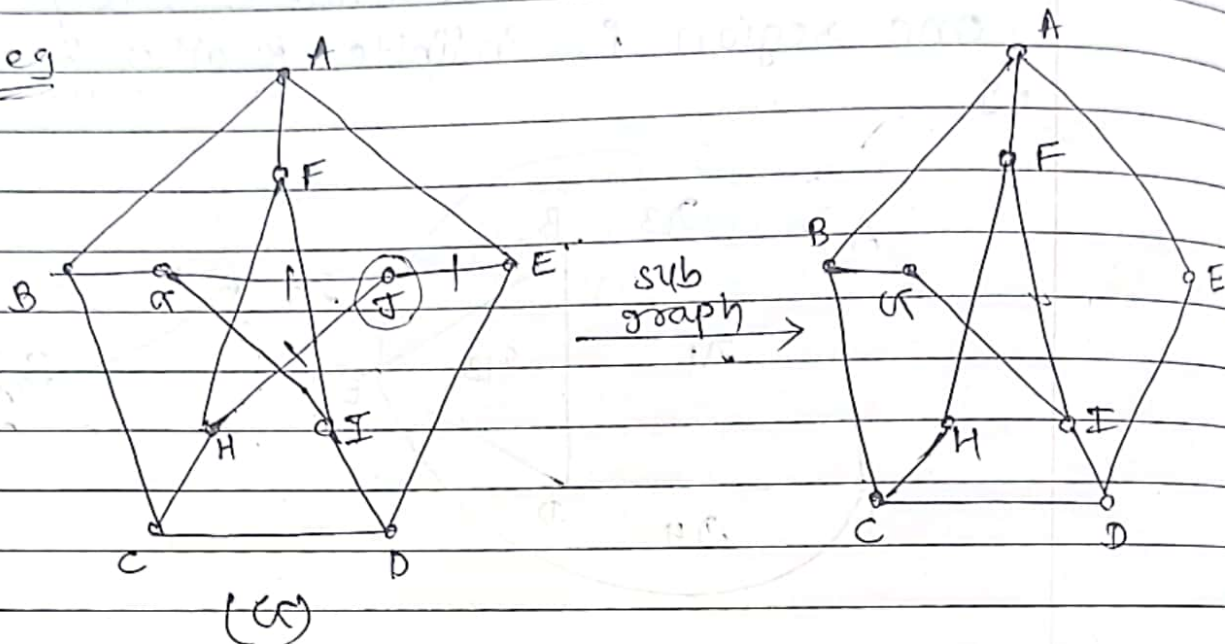 eg
A
F
B
G
J
E
H
I
C
D
(G)
sub
graph
A
F
B
G
E
H
I
C
D